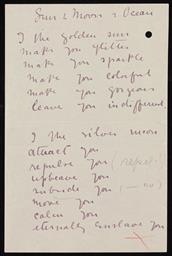 Sun & Moon & Ocean
I the golden sun
make you glitter
make you sparkle
make you colorful
make you gorgeous
leave you indifferent.
I the silver moon
attract you
repulse you (repel)
upheave you
subside you (— no)
move you
calm you
eternally enslave you